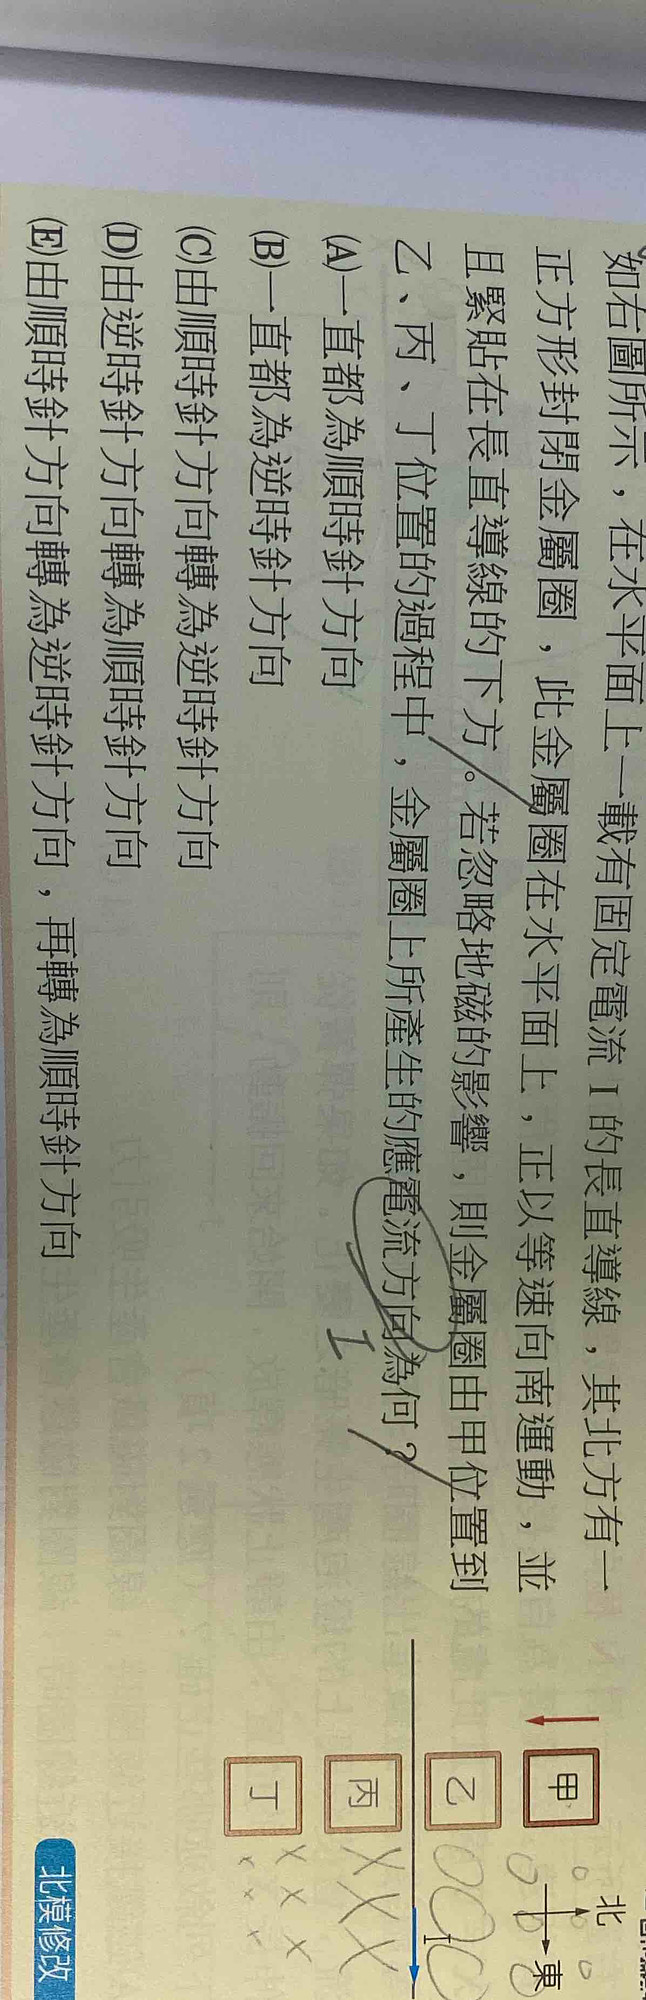 如右圖所示，在水平面上一載有固定電流 I 的長直導線，其北方有一
正方形封閉金屬圈，此金屬圈在水平面上，正以等速向南運動，並
且緊貼在長直導線的下方。若忽略地磁的影響，則金屬圈由甲位置到
乙、丙、丁位置的過程中，金屬圈上所產生的應電流方向為何？
(A)一直都為順時針方向
(B)一直都為逆時針方向
(C)由順時針方向轉為逆時針方向
(D)由逆時針方向轉為順時針方向
(E)由順時針方向轉為逆時針方向，再轉為順時針方向
北
東
甲
乙
I
丙
丁
I
北模修改